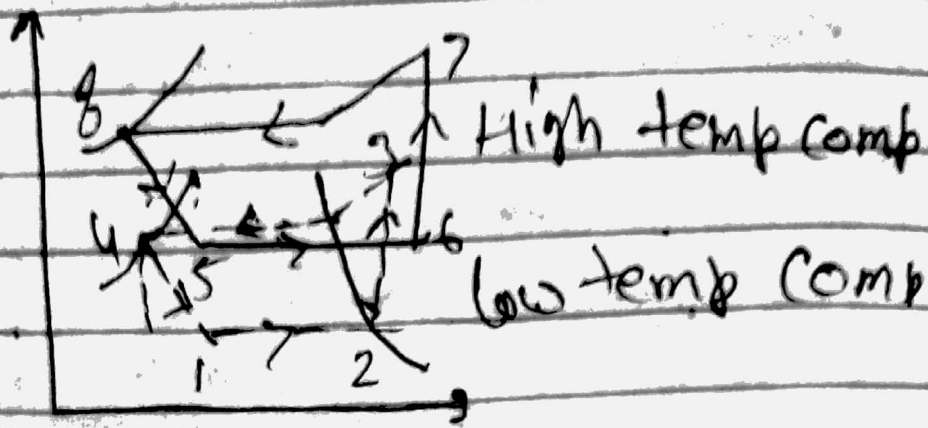 7
8
High temp comp
3
4
6
5
low temp Comp
1
2